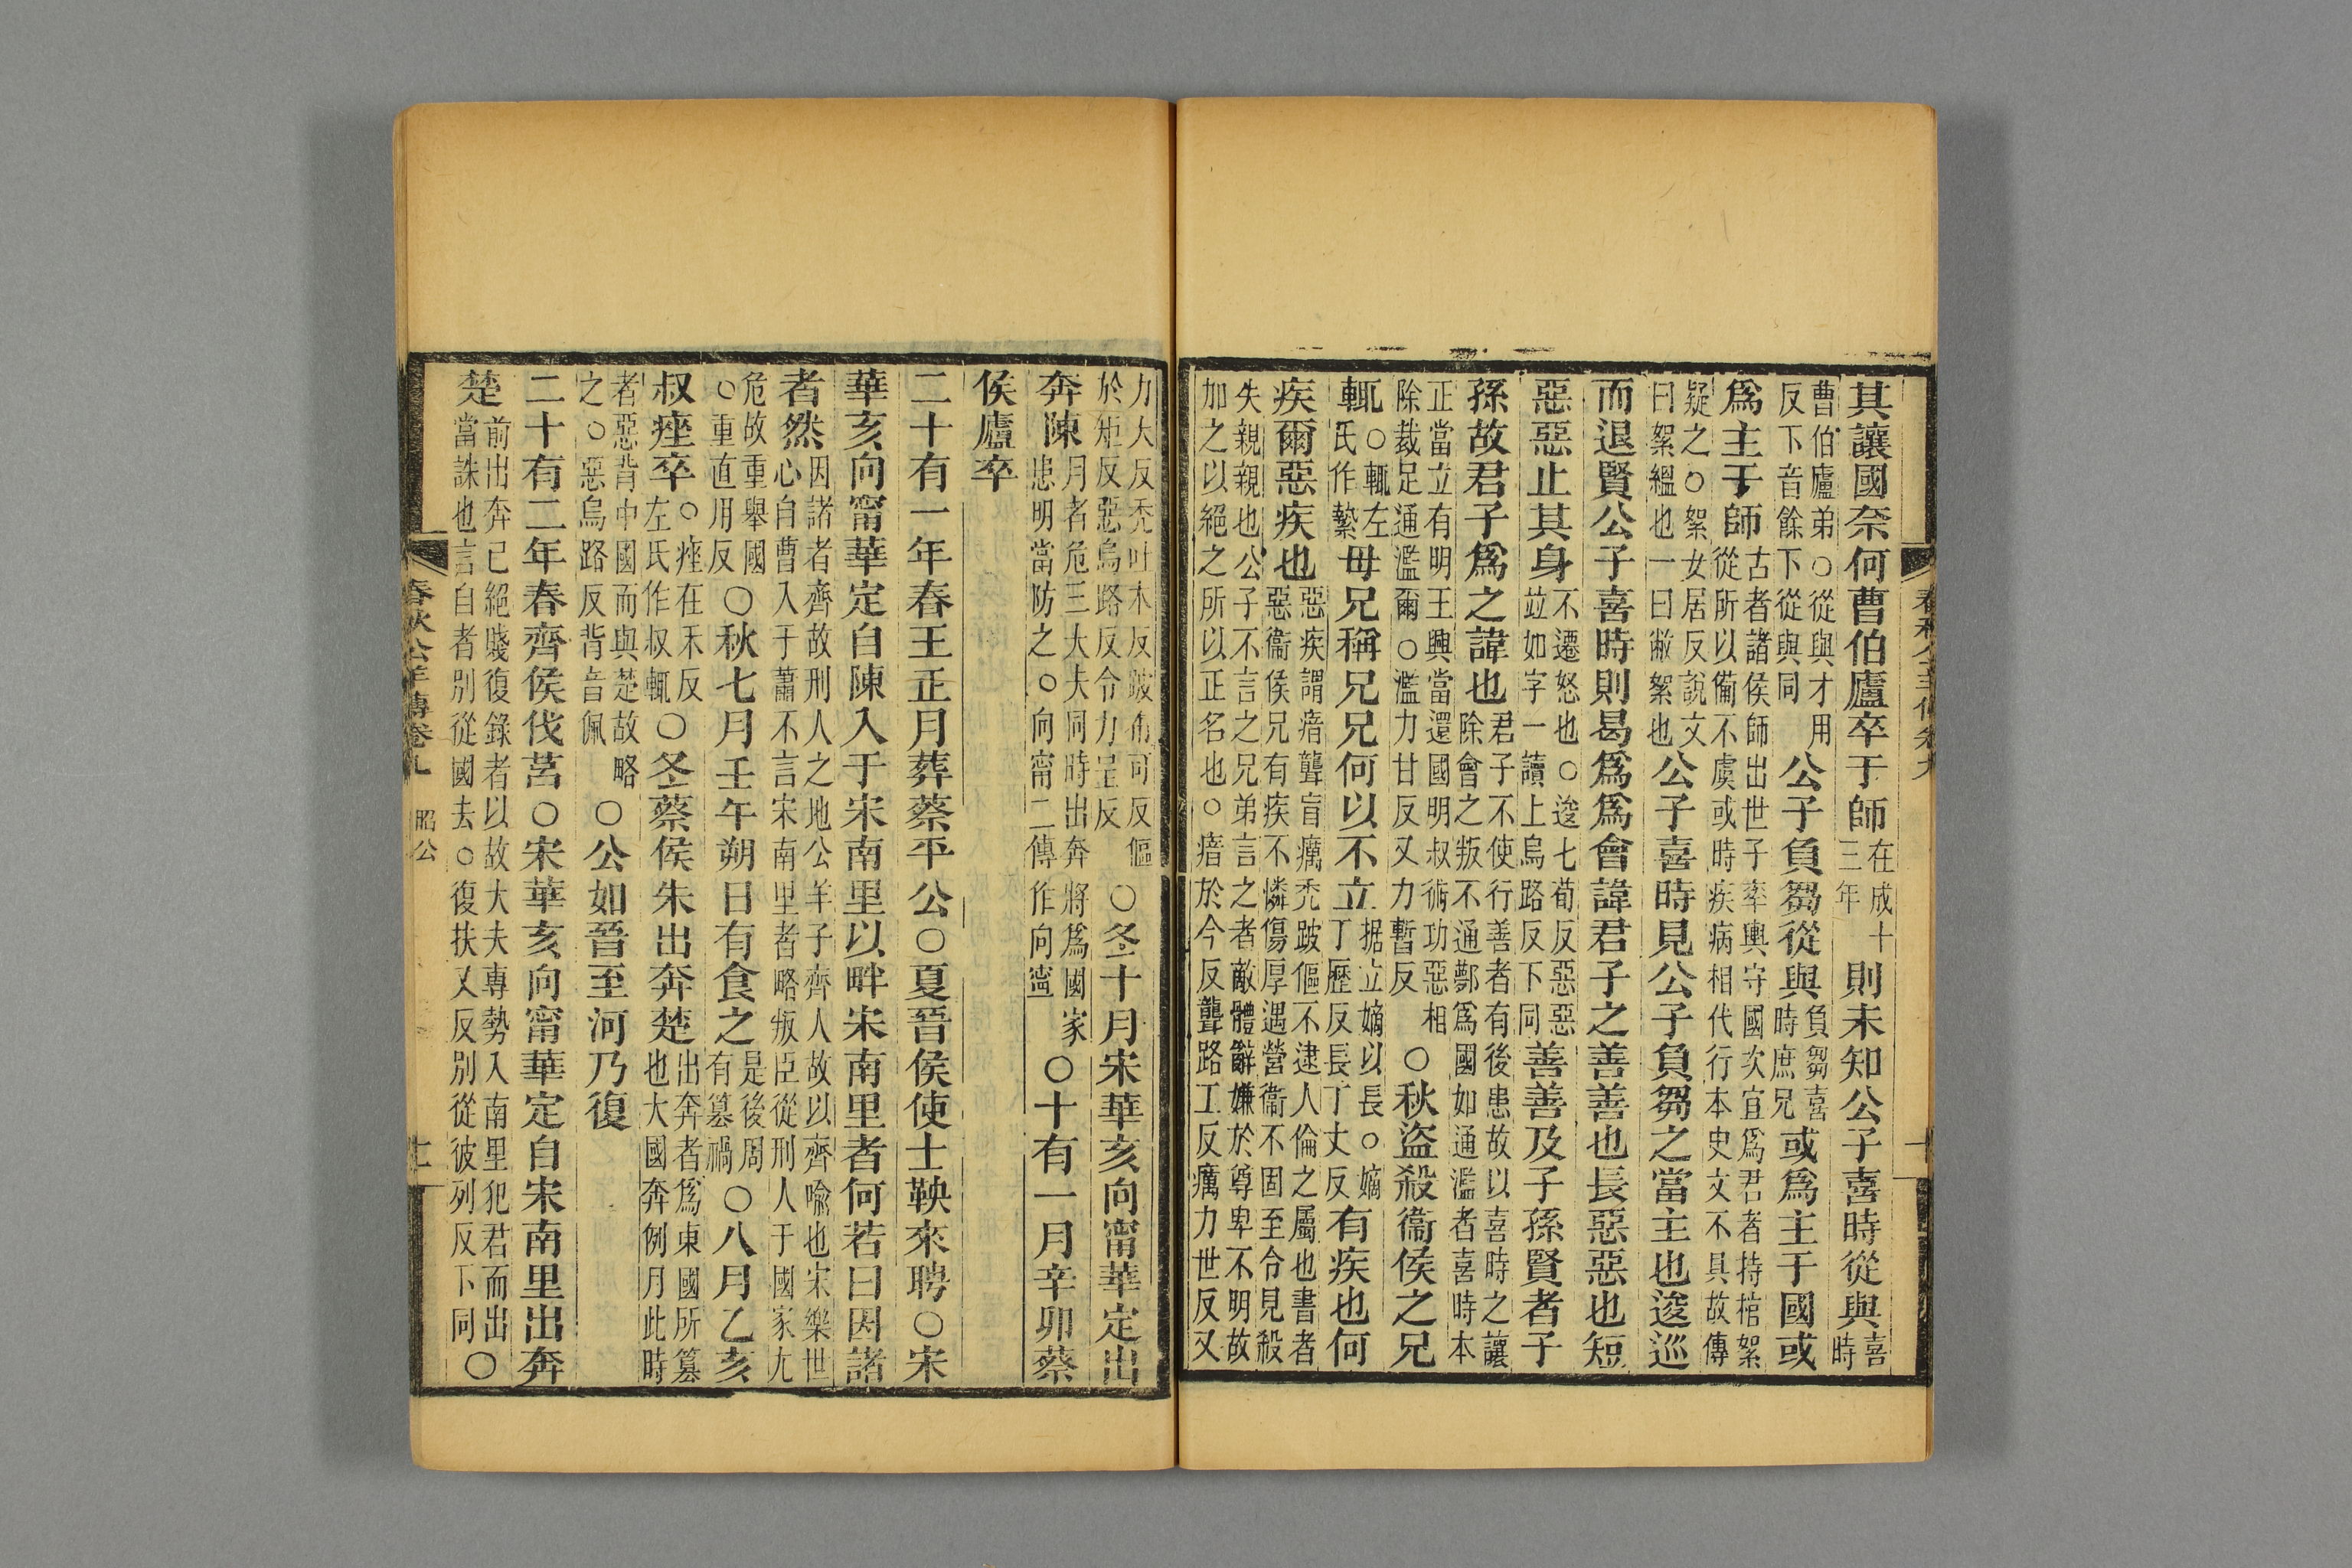 其讓國奈何曹伯廬卒于師在成十三年則未知公子喜時從與喜時
曹伯廬弟○從與才用反下音餘下從與同公子負芻從與負芻喜時庶兄或爲主于國或
爲主于師古者諸侯師出世子率輿守國次宜爲君者持棺絮從所以備不虞或時疾病相代行本史文不具故傳
疑之○絮女居反說文曰絮縕也一曰敝絮也公子喜時見公子負芻之當主也逡巡
而退賢公子喜時則曷爲爲會諱君子之善善也長惡惡也短
惡惡止其身不遷怒也○逡七荀反惡惡竝如字一讀上烏路反下同善善及子孫賢者子
孫故君子爲之諱也君子不使行善者有後患故以喜時之讓除會之叛不通鄸爲國如通濫者喜時本
正當立有明王興當還國明叔術功惡相除裁足通濫爾○濫力甘反又力暫反○秋盜殺衞侯之兄
輒○輒左氏作縶母兄稱兄兄何以不立据立嫡以長○嫡丁歷反長丁丈反有疾也何
疾爾惡疾也惡疾謂瘖聾盲癘禿跛傴不逮人倫之屬也書者惡衞侯兄有疾不憐傷厚遇營衞不固至令見殺
失親親也公子不言之兄弟言之者敵體辭嫌於尊卑不明故加之以絕之所以正名也○瘖於今反聾路工反癘力世反又
春秋公羊傳卷九
力大反禿吐木反跛布可反傴於矩反惡烏路反令力呈反○冬十月宋華亥向甯華定出
奔陳月者危三大夫同時出奔將爲國家患明當防之○向甯二傳作向寧○十有一月辛卯蔡
侯廬卒
二十有一年春王正月葬蔡平公○夏晉侯使士鞅來聘○宋
華亥向甯華定自陳入于宋南里以畔宋南里者何若曰因諸
者然因諸者齊故刑人之地公羊子齊人故以齊喻也宋樂世心自曹入于蕭不言宋南里者略叛臣從刑人于國家尢
危故重舉國○重直用反○秋七月壬午朔日有食之是後周有篡禍○八月乙亥
叔痤卒○痤在禾反左氏作叔輒○冬蔡侯朱出奔楚出奔者爲東國所篡也大國奔例月此時
者惡背中國而與楚故略之○惡烏路反背音佩○公如晉至河乃復
二十有二年春齊侯伐莒○宋華亥向甯華定自宋南里出奔
楚前出奔已絕賤復錄者以故大夫專勢入南里犯君而出當誅也言自者別從國去○復扶又反別從彼列反下同○
春秋公羊傳卷九 昭公 十一